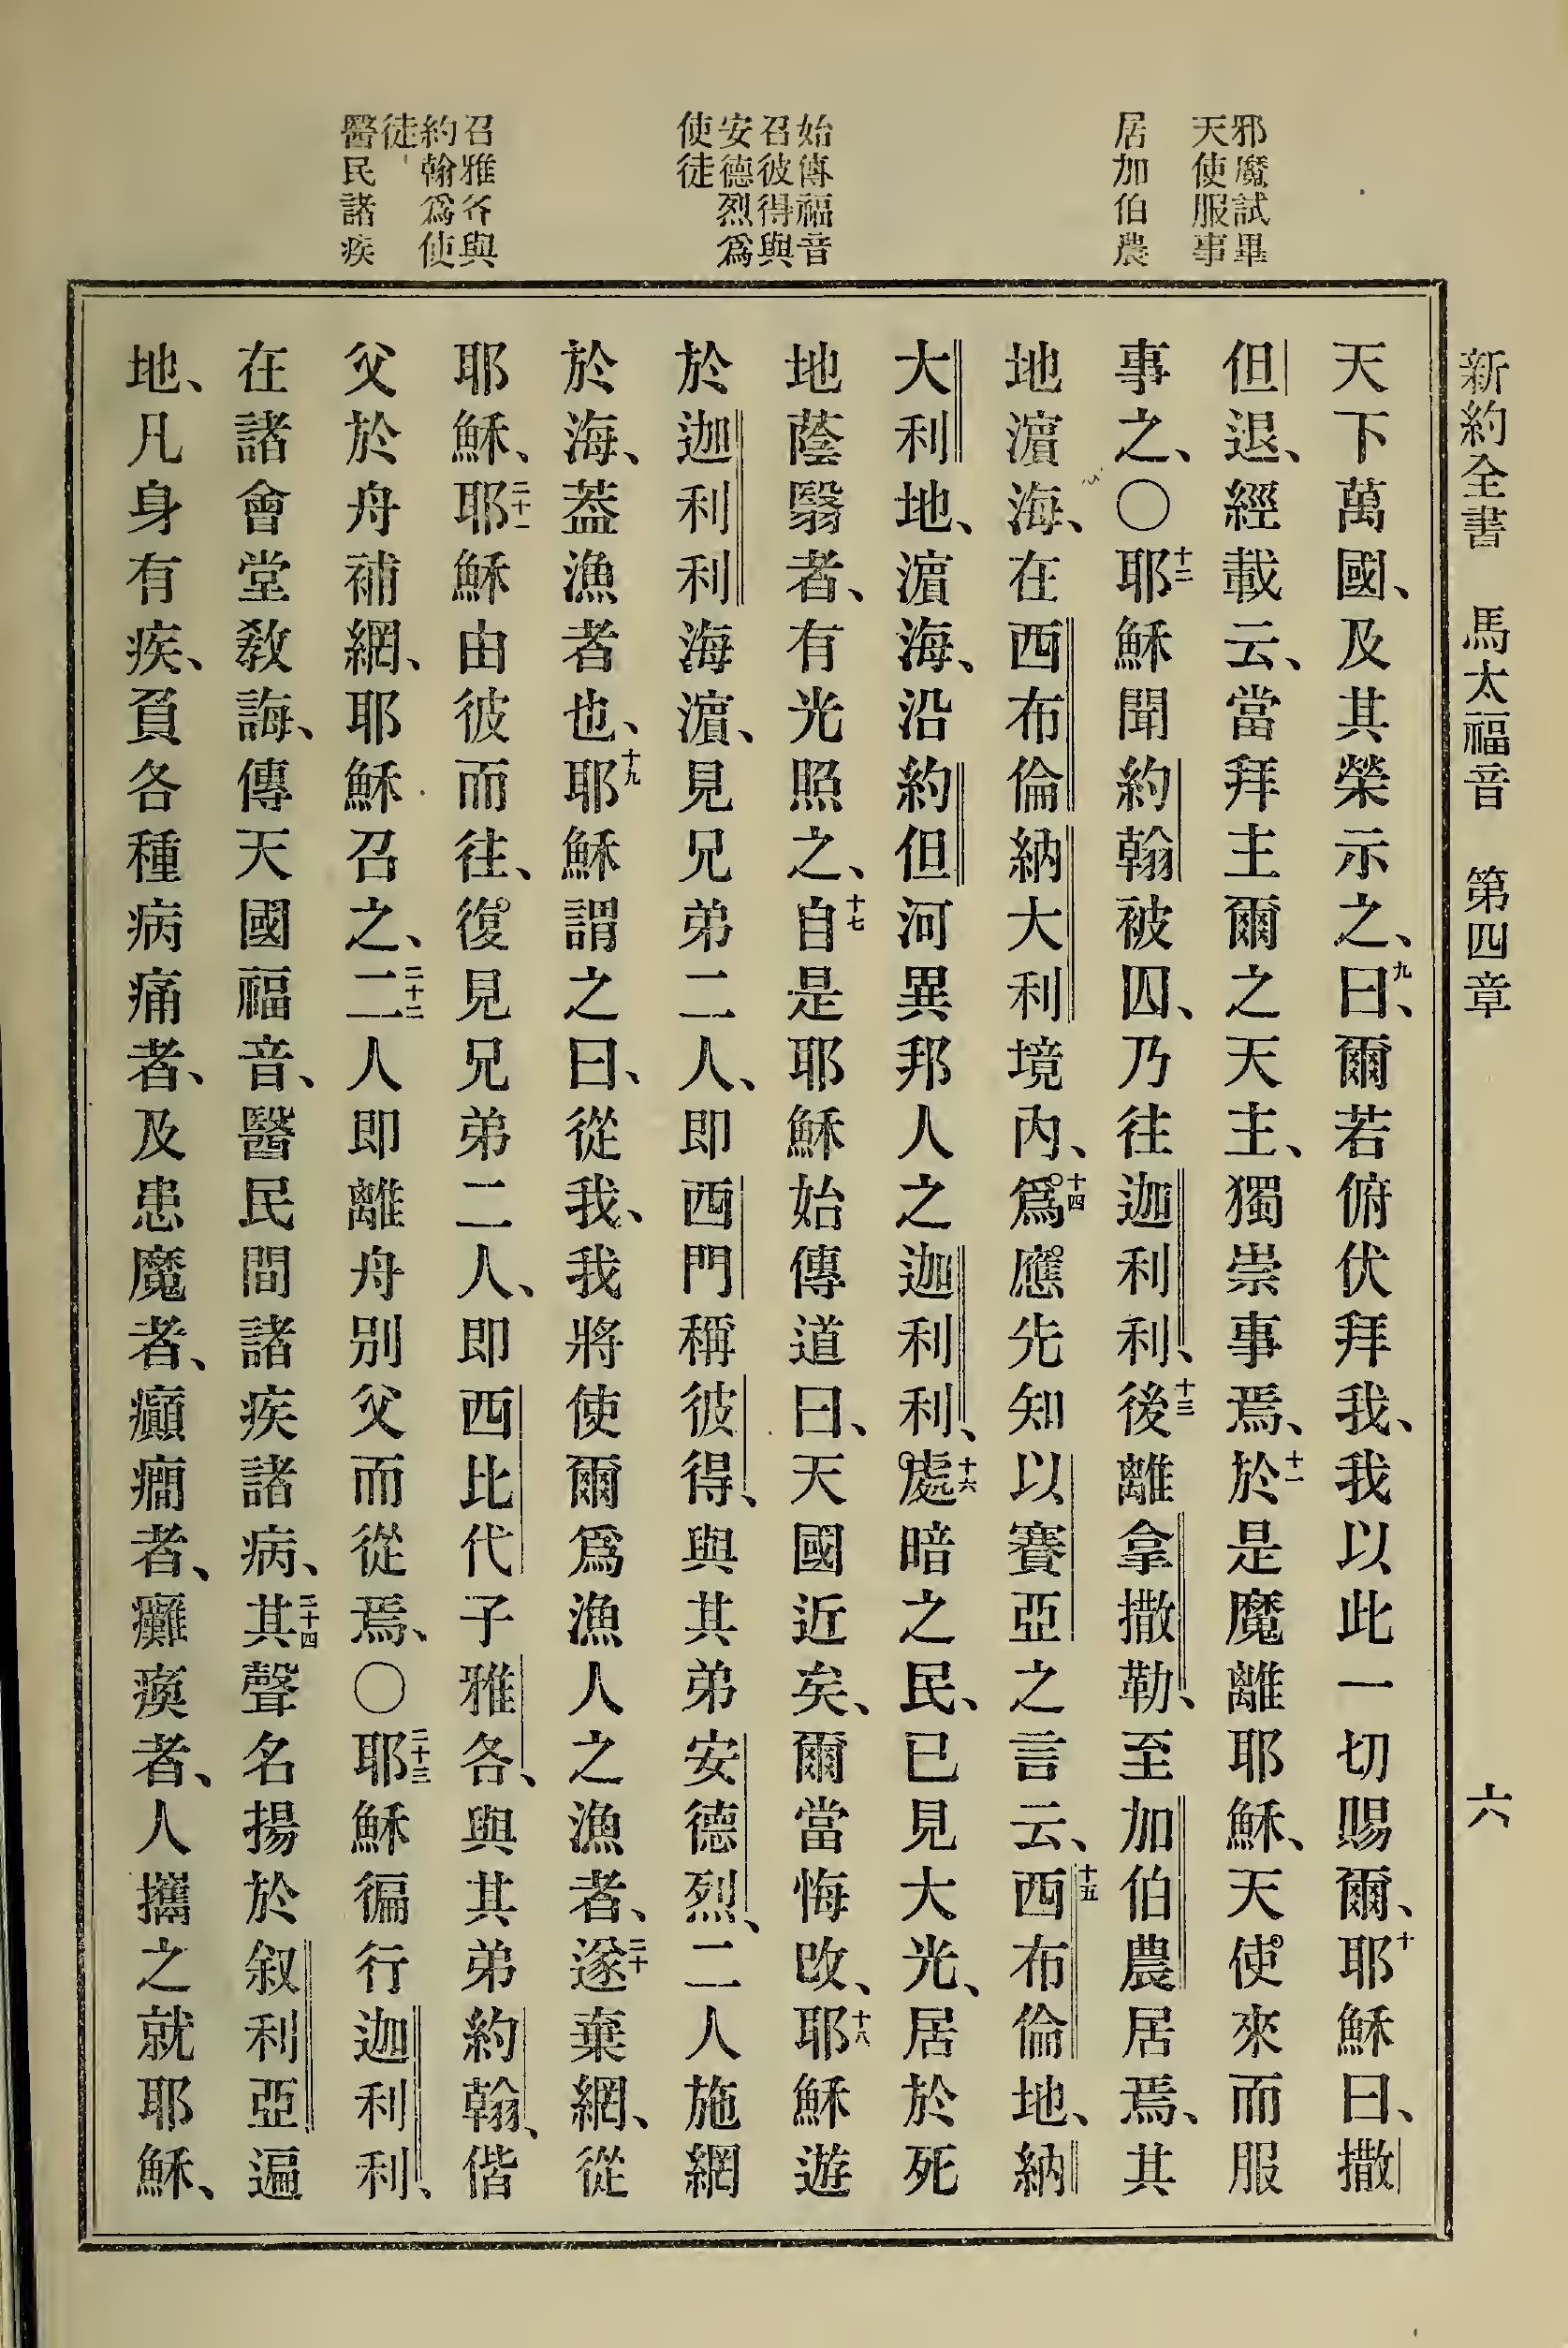 新約全書 馬太福音 第四章 六
邪魔試畢
天使服事
居加伯農
始傳福音
召彼得與
安德烈爲
使徒
召雅各與
約翰爲使
徒
醫民諸疾
天下萬國、及其榮示之、九曰、爾若俯伏拜我、我以此一切賜爾、十耶穌曰、撒
但退、經載云、當拜主爾之天主、獨崇事焉、十一於是魔離耶穌、天使來而服
事之、〇十二耶穌聞約翰被囚、乃往迦利利、十三後離拿撒勒、至加伯農居焉、其
地濵海、在西布倫納大利境內、十四爲應先知以賽亞之言云、十五西布倫地、納
大利地、濵海、沿約但河異邦人之迦利利、十六處暗之民、已見大光、居於死
地蔭翳者、有光照之、十七自是耶穌始傳道曰、天國近矣、爾當悔改、十八耶穌遊
於迦利利海濵、見兄弟二人、即西門稱彼得、與其弟安德烈、二人施網
於海、葢漁者也、十九耶穌謂之曰、從我、我將使爾爲漁人之漁者、二十遂棄網、從
耶穌、二十一耶穌由彼而往、復見兄弟二人、即西比代子雅各、與其弟約翰、偕
父於舟補網、耶穌召之、二十二二人即離舟別父而從焉、〇二十三耶穌徧行迦利利、
在諸會堂敎誨、傳天國福音、醫民間諸疾諸病、二十四其聲名揚於叙利亞遍
地、凡身有疾、負各種病痛者、及患魔者、癲癇者、癱瘓者、人攜之就耶穌、